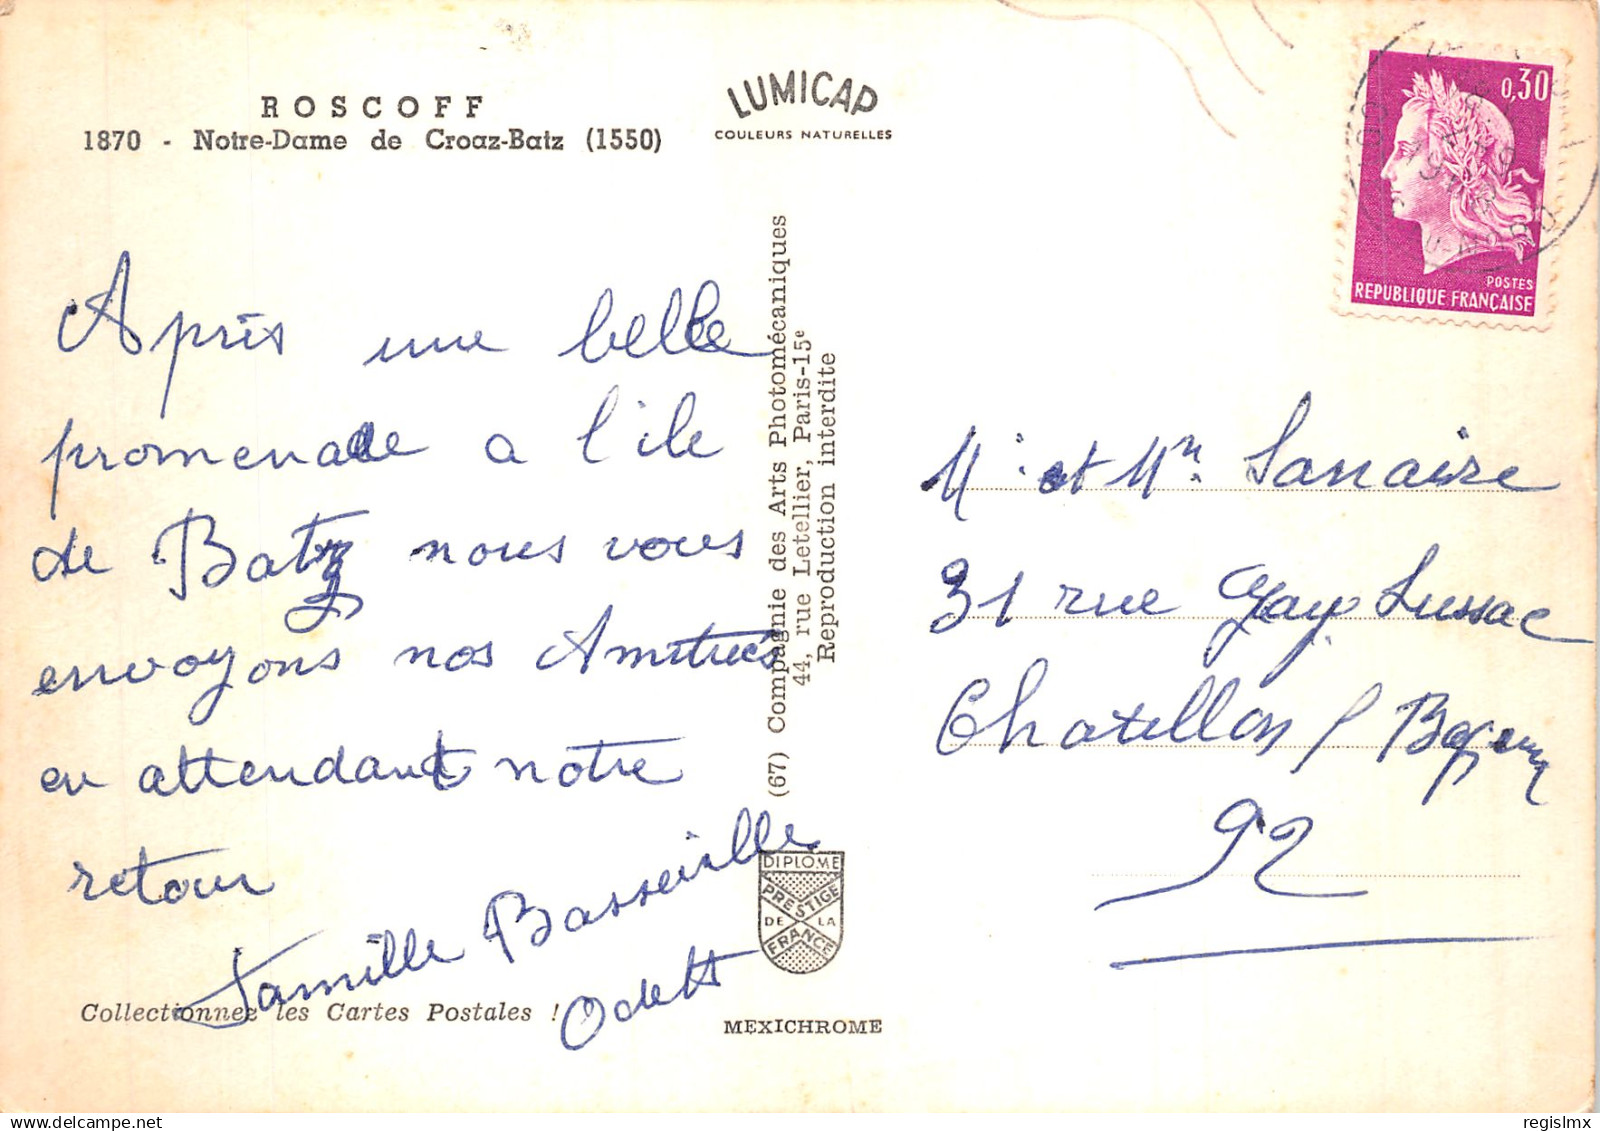 ROSCOFF
1870 - Notre-Dame de Croaz-Batz (1550)
LUMICAP
COULEURS NATURELLES
0,30
POSTES
REPUBLIQUE FRANÇAISE
Après une belle
promenade a l'ile
de Batz nous vous
envoyons nos Amitiés
en attendant notre
retour
Famille Basseville
Odette
Collectionnez les Cartes Postales !
(67) Compagnie des Arts Photomécaniques
44, rue Letellier, Paris-15e
Reproduction interdite
DIPLOME
PRESTIGE
DE LA
FRANCE
MEXICHROME
Mr et Mm
31 rue Gay Lussac
Chatillon s/ Bagneux
92
regislmx